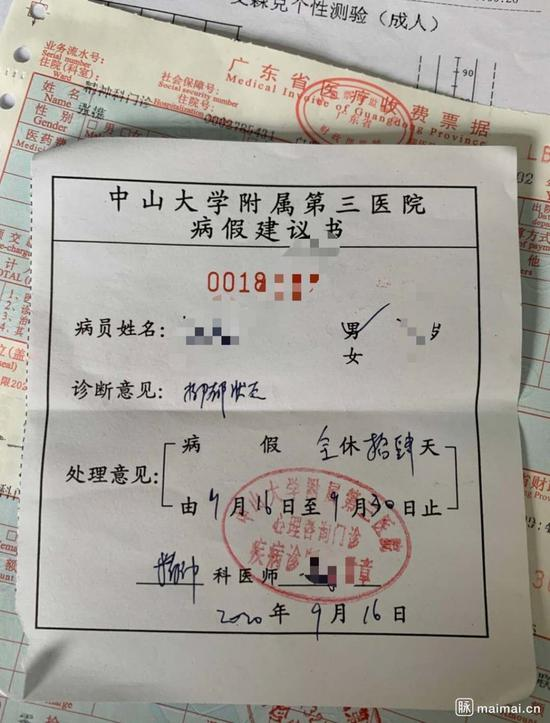 艾森克个性测验（成人）
90
业务流水号：
Serial number
住院(科室)：
Ward
精神科门诊
社会保障号：
Social security number
住院号：
Hospitalization
广东省医疗收费票据
Medical Invoice of Guangdong Province
姓名
Name
性别
Gender
男
医药费
Medical
中山大学附属第三医院
病假建议书
0018
病员姓名：
男
岁
女
诊断意见：抑郁状态
处理意见：
病假 全休拾肆天
由9月16日至9月30日止
中山大学附属第三医院
心理咨询门诊
疾病诊断
章
精神科医师
2020年9月16日
脉 maimai.cn